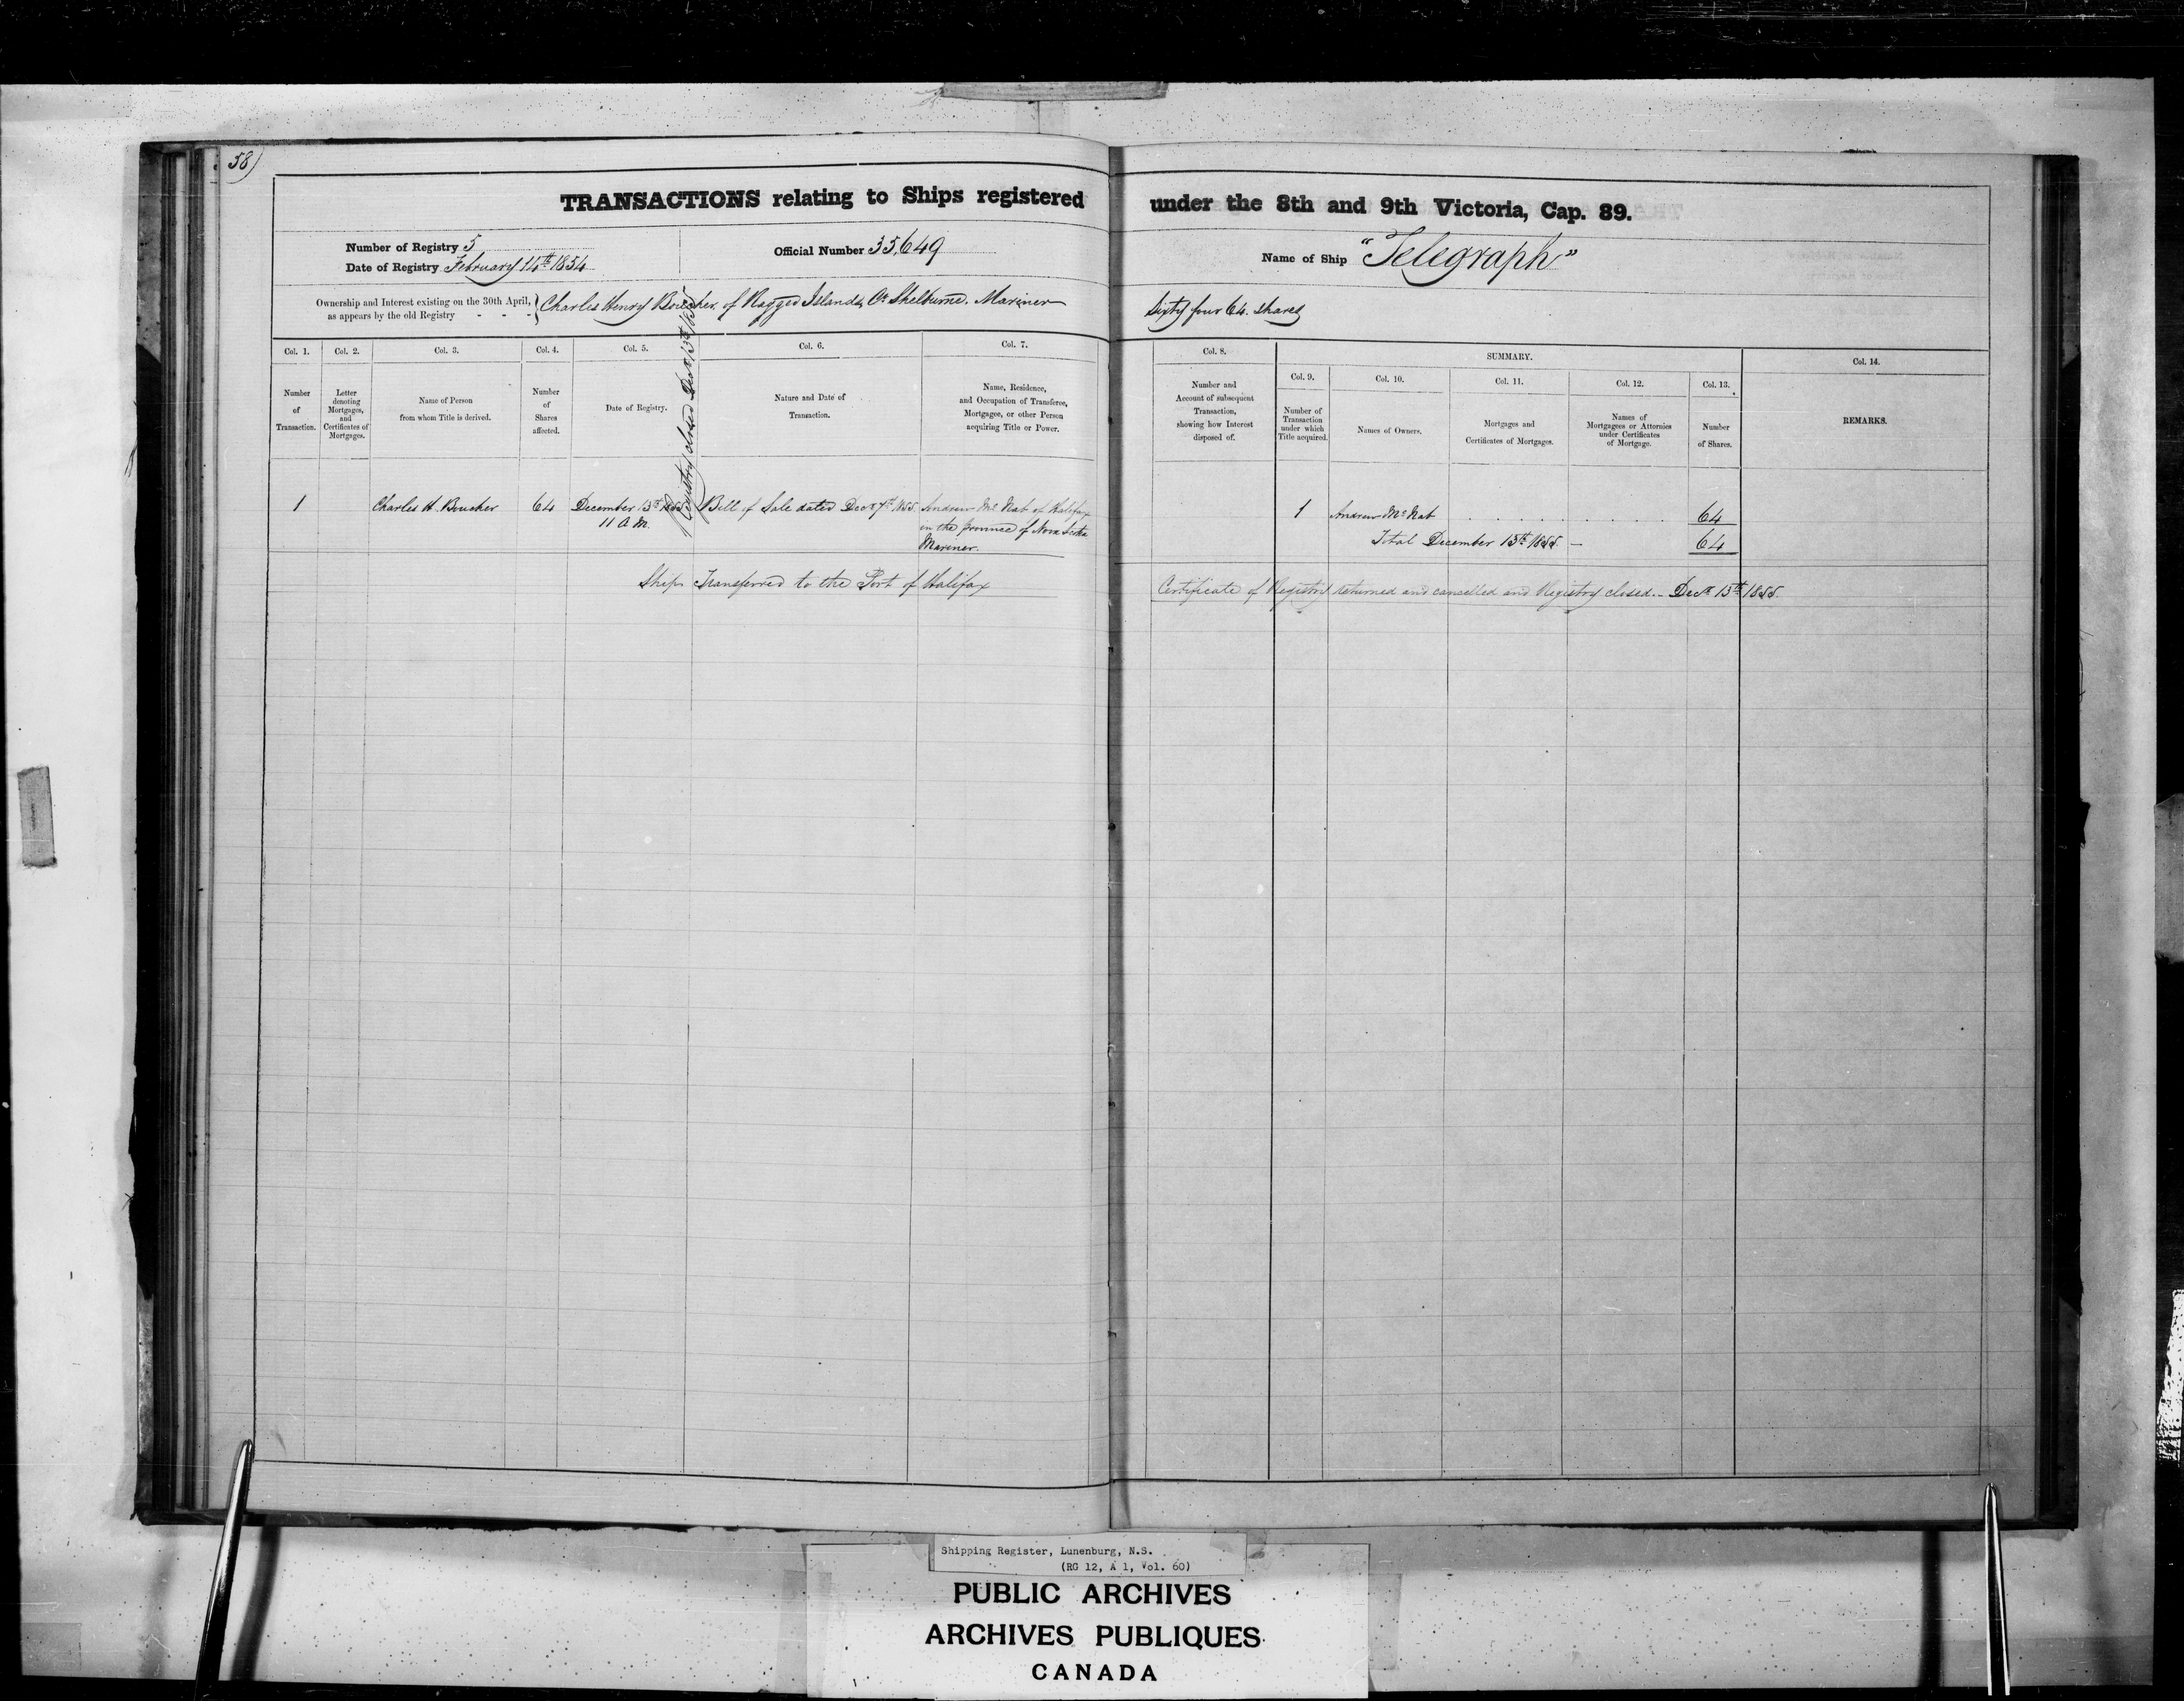 58)
TRANSACTIONS relating to Ships registered under the 8th and 9th Victoria, Cap. 89.
Number of Registry 5
Date of Registry February 14th 1854
Official Number 35,649
Name of Ship "Telegraph"
Ownership and Interest existing on the 30th April, as appears by the old Registry - - - } Charles Henry Boucher, of Ragged Islands Co Shelburne. Mariner Sixty four 64. Shares
Registry closed Decr 13th 1855
Col. 1.
Number of Transaction.
Col. 2.
Letter denoting Mortgages, and Certificates of Mortgages.
Col. 3.
Name of Person from whom Title is derived.
Col. 4.
Number of Shares affected.
Col. 5.
Date of Registry.
Col. 6.
Nature and Date of Transaction.
Col. 7.
Name, Residence, and Occupation of Transferee, Mortgagee, or other Person acquiring Title or Power.
Col. 8.
Number and Account of subsequent Transaction, showing how Interest disposed of.
SUMMARY.
Col. 9.
Number of Transaction under which Title acquired.
Col. 10.
Names of Owners.
Col. 11.
Mortgages and Certificates of Mortgages.
Col. 12.
Names of Mortgagees or Attornies under Certificates of Mortgage.
Col. 13.
Number of Shares.
Col. 14.
REMARKS.
1 Charles H. Boucher 64 December 13th 1855 Bill of Sale dated Decr 7th 1855. Andrew Mc Nab of Halifax
11 A M. in the province of Nova Scotia
Mariner.
1 Andrew Mc Nab . . . . . . . . 64
Total December 13th 1855. — 64
Ship Transferred to the Port of Halifax Certificate of Registry returned and cancelled and Registry closed.- Decr 13th 1855.
Shipping Register, Lunenburg, N.S.
(RG 12, A 1, Vol. 60)
PUBLIC ARCHIVES
ARCHIVES PUBLIQUES
CANADA